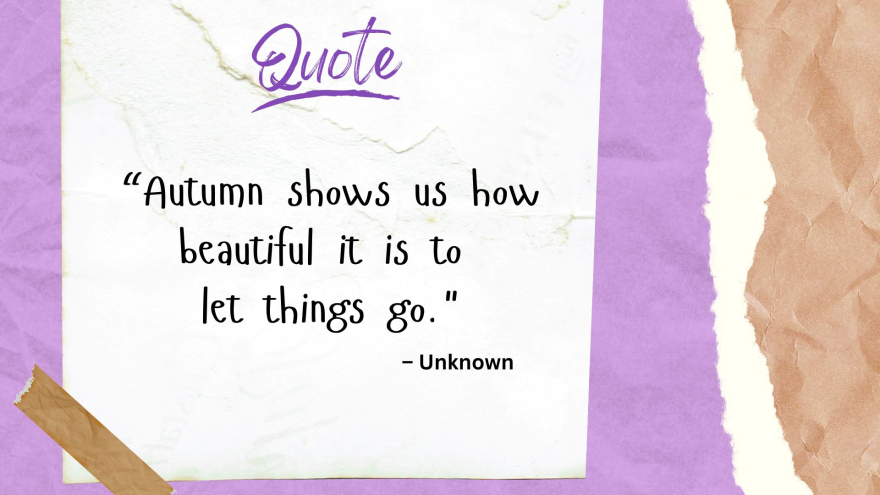 Quote
“Autumn shows us how
beautiful it is to
let things go."
– Unknown